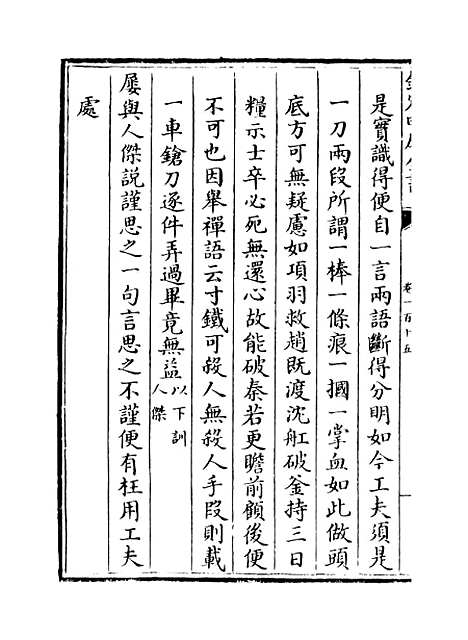 是實識得便自一言兩語斷得分明如今工夫須是
一刀兩段所謂一棒一條痕一摑一掌血如此做頭
底方可無疑慮如項羽救趙既渡沈舡破釜持三日
糧示士卒必死無還心故能破秦若更瞻前顧後便
不可也因舉禪語云寸鐵可殺人無殺人手段則載
一車鎗刀逐件弄過畢竟無益以下訓人傑
屢與人傑説謹思之一句言思之不謹便有枉用工夫
處
卷一百十五